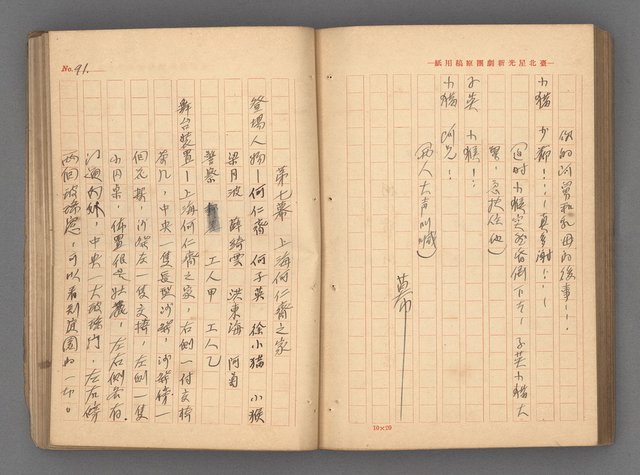 臺北星光新劇團原稿用紙
你的阿舅和乳母的後事！！
小猫 少爺！！！真多謝！！
（這時小猴突然昏倒下去，子英小猫大
驚，急扶住他）
子英 小猴！！
小猫 阿兄！！
（兩人大声叫喊）
幕
10×20
No. 91.
第七幕 上海何仁齋之家
登場人物—何仁齋 何子英 徐小猫 小猴
梁月波 薛綺雲 洪東海 阿菊
警察 工人甲 工人乙
舞台裝置—上海何仁齋之家，右側一付交椅
茶几，中央一隻長型沙發，沙發傍一
個花瓶，沙發左一隻交椅，左側一隻
小円桌，佈置很是壯麗，左右側各有
門通內外，中央一大玻璃門，左右傍
兩個玻璃窓，可以看到庭園的一切。